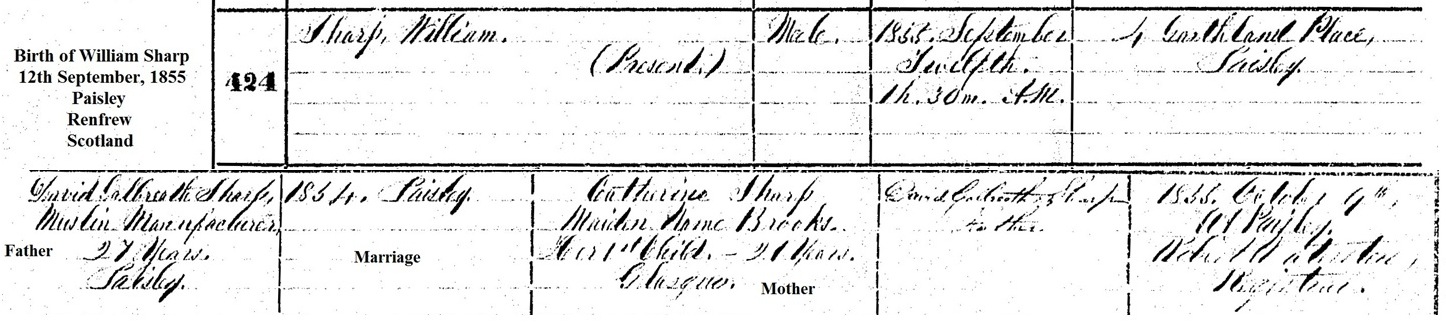 Birth of William Sharp
12th September, 1855
Paisley
Renfrew
Scotland
424
Sharp, William.
(Present.)
Male.
1855. September
Twelfth.
1h. 30m. A.M.
4 Garthland Place,
Paisley.
David Galbreath Sharp,
Muslin Manufacturer,
27 Years.
Paisley.
Father
1854. Paisley.
Marriage
Catherine Sharp
Maiden Name Brooks.
Her 1st Child. – 21 Years.
Glasgow.
Mother
David Galbreath Sharp
Father.
1855. October 9th,
At Paisley.
Robert
Registrar.